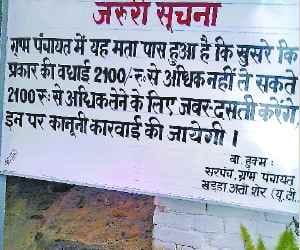 जरूरी सूचना
ग्राम पंचायत में यह मता पास हुआ है कि खुसरे कि
प्रकार की वधाई 2100/-रु से अधिक नहीं ले सकते
2100 रु॰ से अधिक लेने के लिए जबर-दस्ती करेंगे,
इन पर कानूनी कारवाई की जायेगी ।
बा. हुक्म :
सरपंच, ग्राम पंचायत
खुड्डा अली शेर (यू.टी.